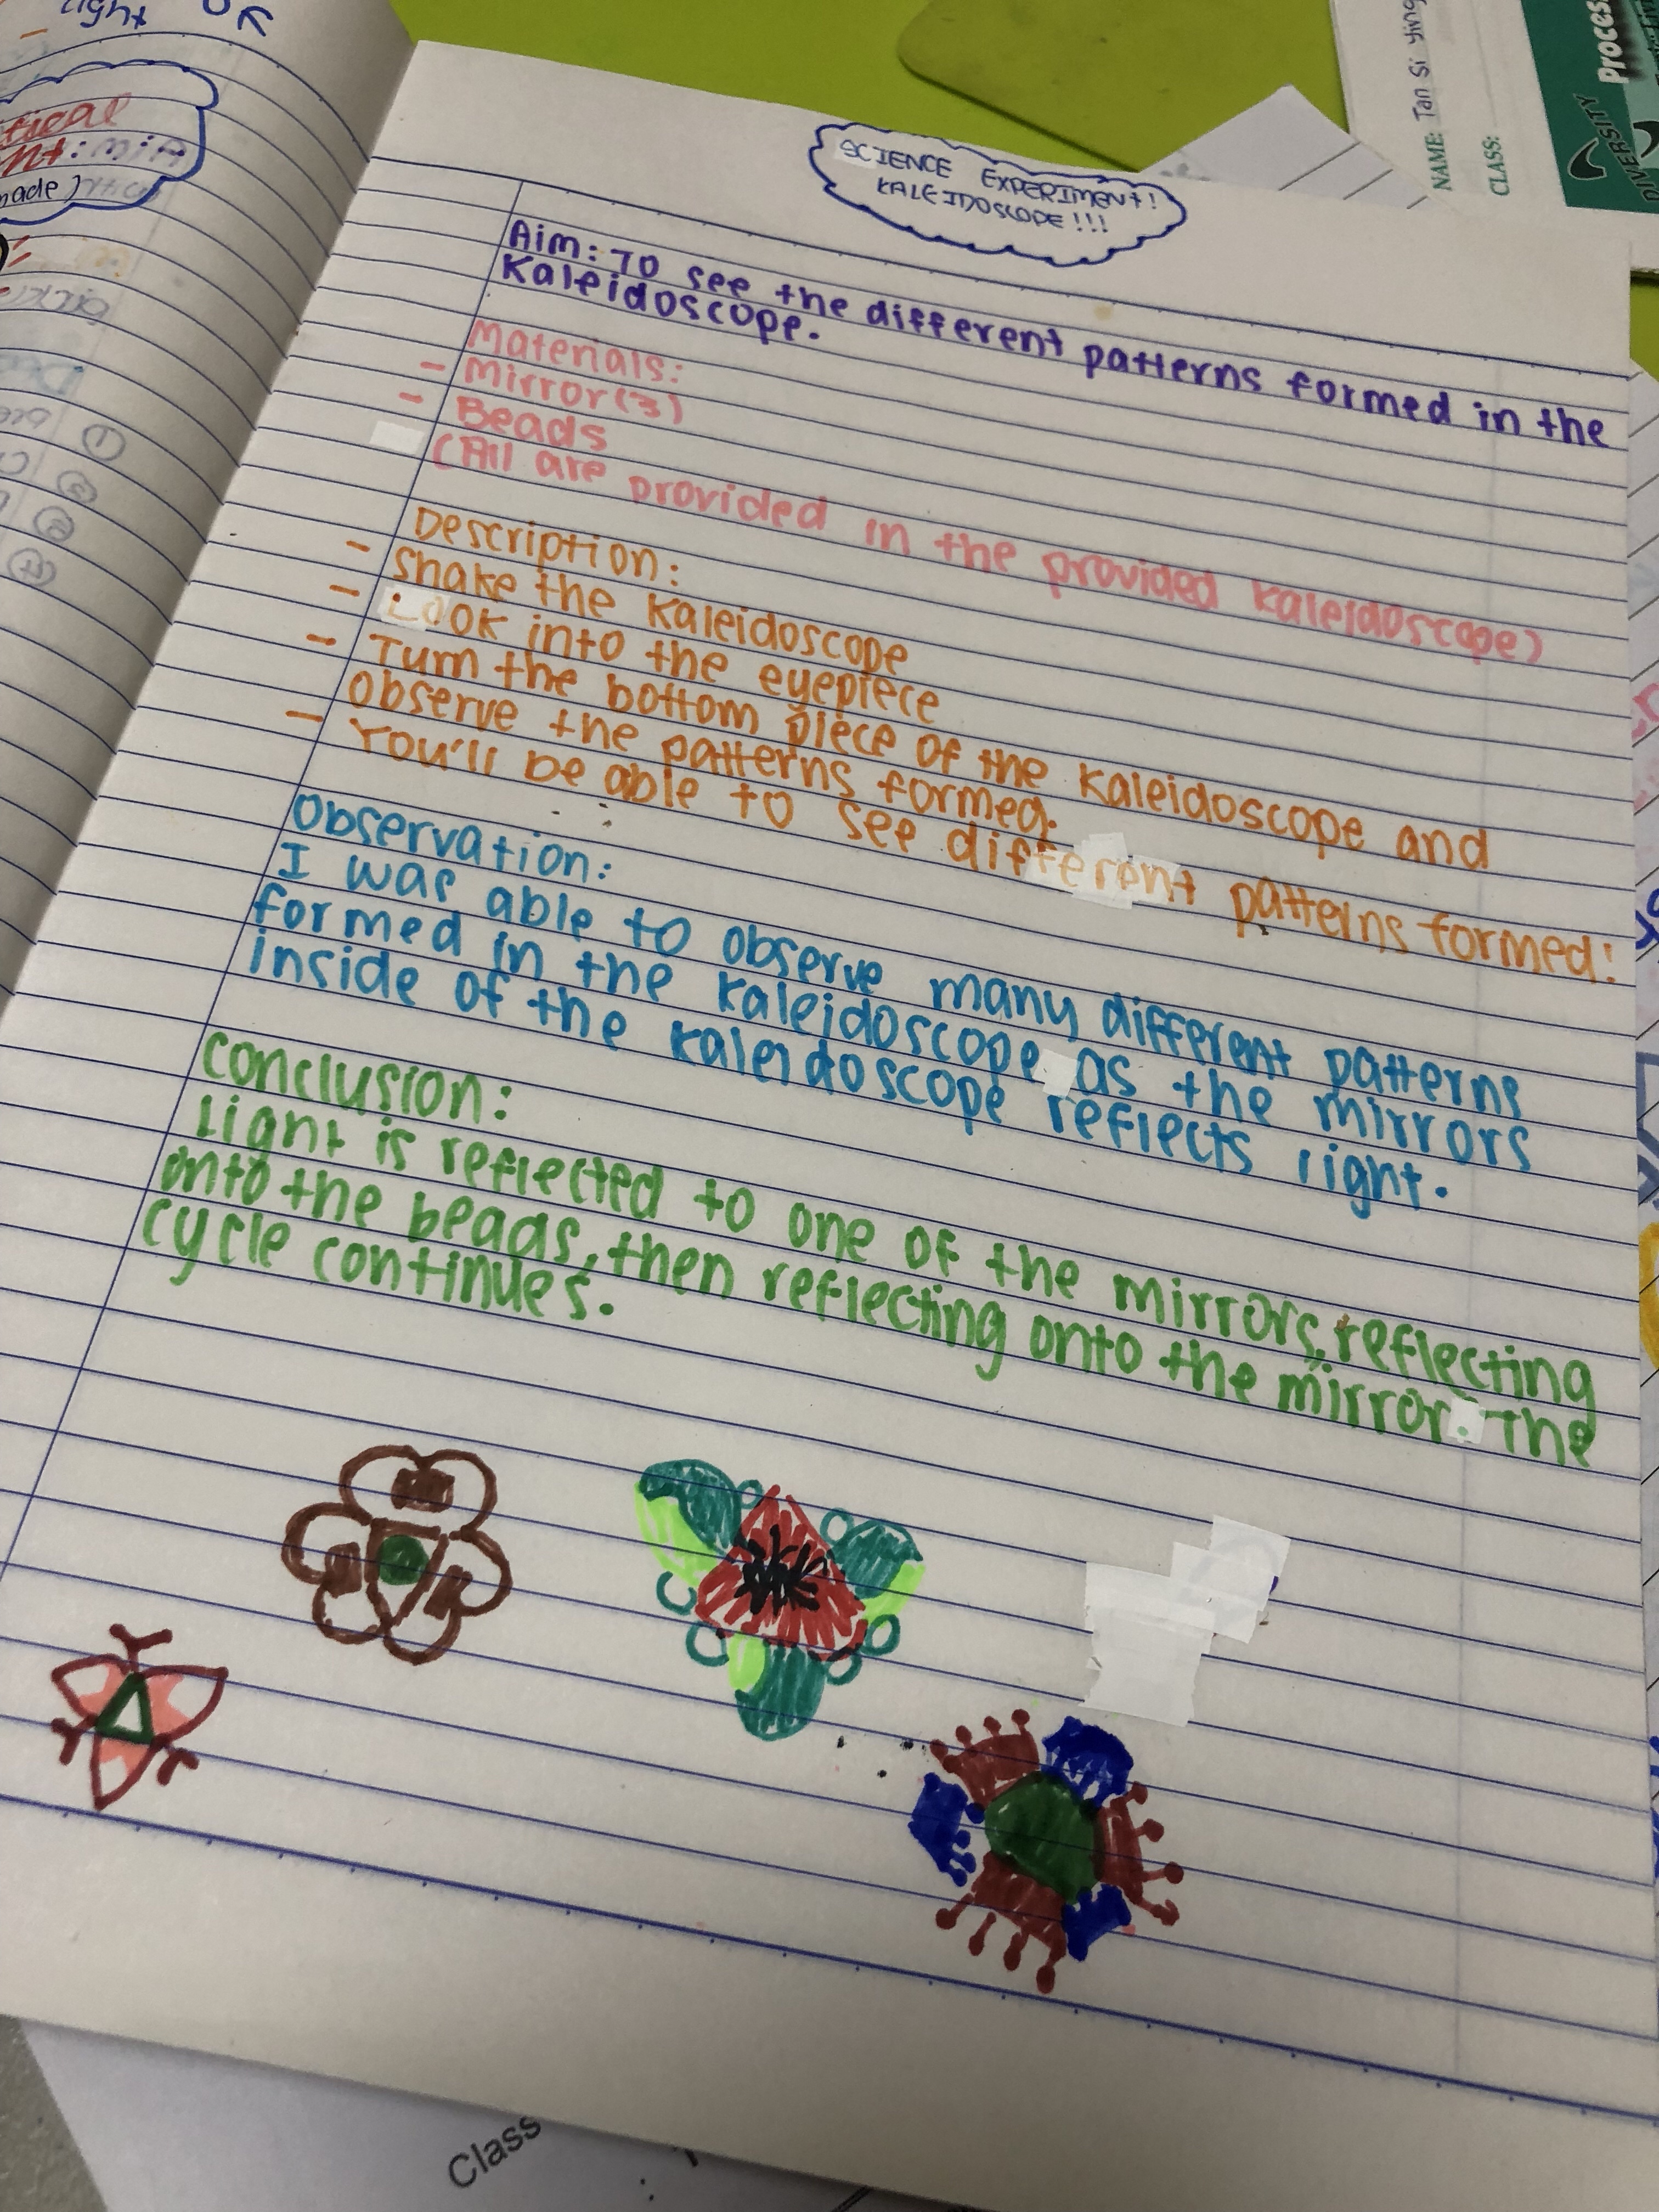 light
SCIENCE EXPERIMENT!
KALEIDOSCOPE!!!
Aim: To see the different patterns formed in the
Kaleidoscope.
Materials:
- Mirror(3)
- Beads
(All are provided in the provided kaleidoscope)
Description:
- Shake the Kaleidoscope
- Look into the eyepiece
- Turn the bottom piece of the Kaleidoscope and
observe the patterns formed.
- You'll be able to see different patterns formed!
Observation:
I was able to observe many different patterns
formed in the kaleidoscope as the mirrors
inside of the kaleidoscope reflects light.
Conclusion:
Light is reflected to one of the mirrors, reflecting
onto the beads, then reflecting onto the mirror. The
cycle continues.
NAME: Tan Si Ying
CLASS:
DIVERSITY
Class